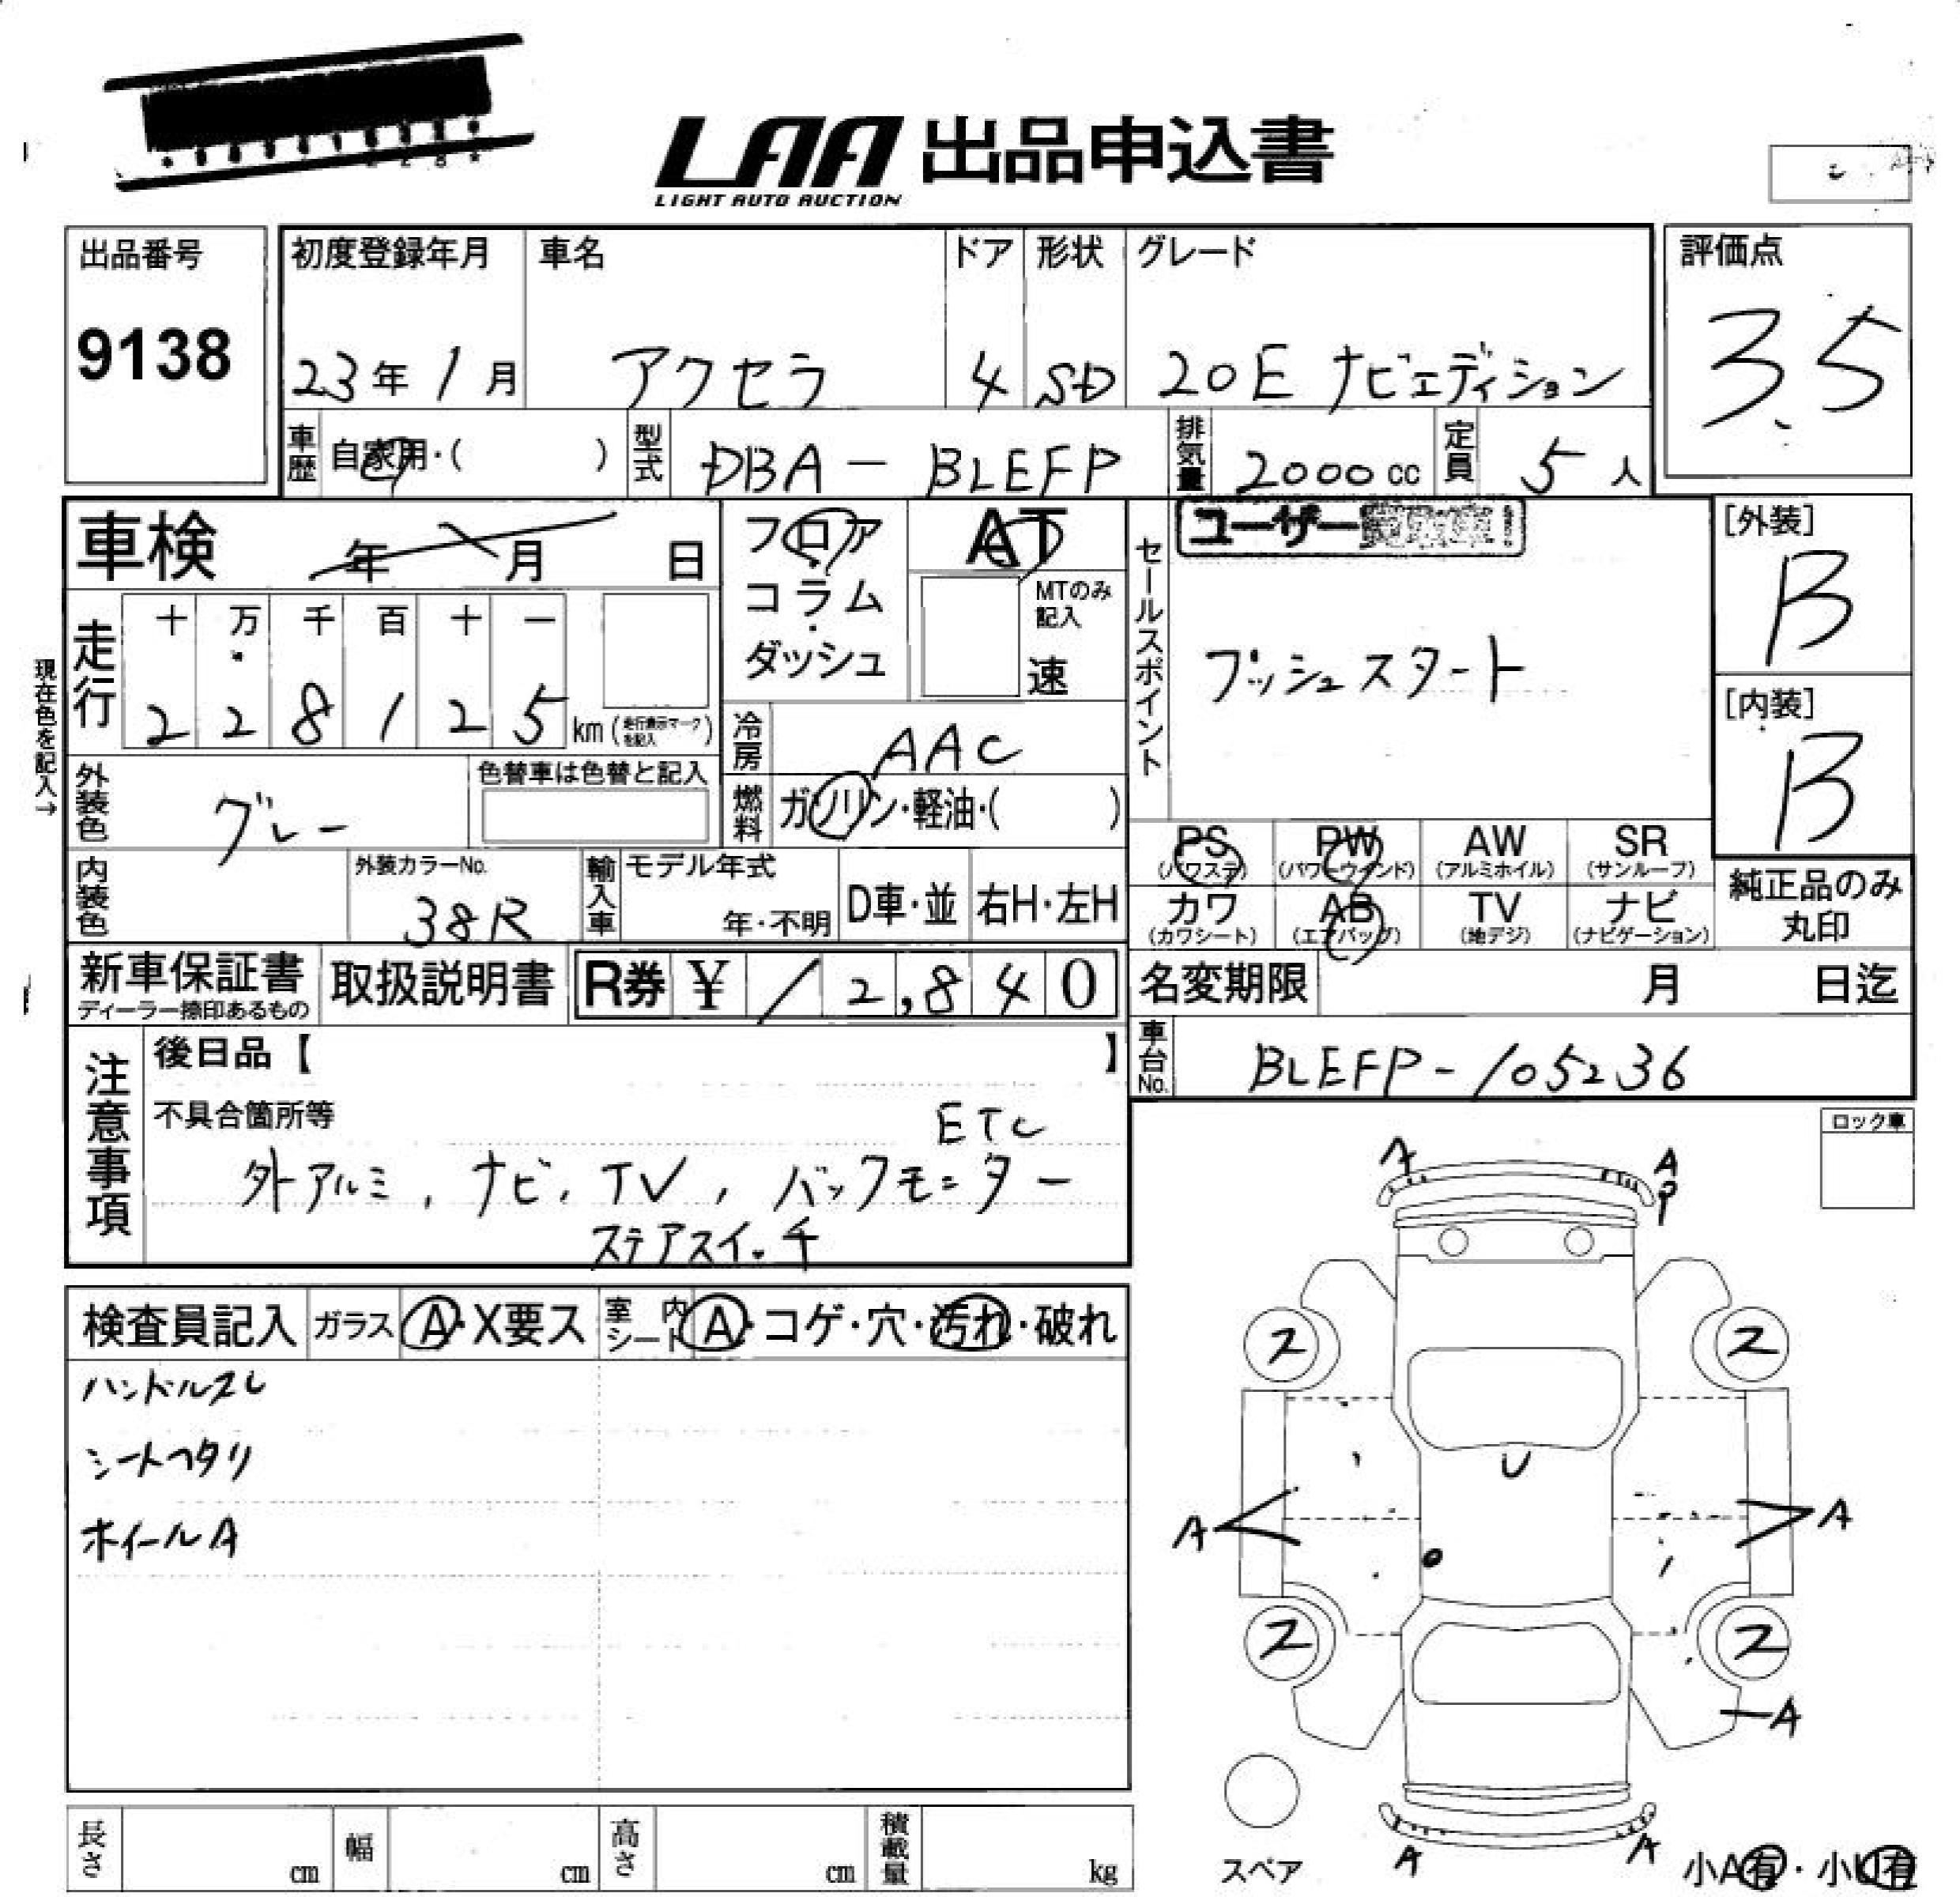 LAA 出品申込書
LIGHT AUTO AUCTION
出品番号
9138
初度登録年月
23年1月
車名
アクセラ
ドア
4
形状
SD
グレード
20E ナビエディション
評価点
3.5
車歴
自家用・( )
型式
DBA-BLEFP
排気量
2000cc
定員
5人
車検 年 月 日
フロア
コラム
ダッシュ
AT
MTのみ
記入
速
セールスポイント
ユーザー
プッシュスタート
[外装]
B
[内装]
B
現在色を記入→
走行
十 万 千 百 十 一
2 2 8 1 2 5 km(走行表示マークを記入)
冷房
AAC
外装色
グレー
色替車は色替と記入
燃料
ガソリン・軽油・( )
PS
(パワステ)
PW
(パワーウインド)
AW
(アルミホイル)
SR
(サンルーフ)
カワ
(カワシート)
AB
(エアバッグ)
TV
(地デジ)
ナビ
(ナビゲーション)
純正品のみ
丸印
内装色
外装カラーNo.
38R
輸入車
モデル年式
年・不明
D車・並
右H・左H
新車保証書
ディーラー捺印あるもの
取扱説明書
R券 ¥ 12,840
名変期限 月 日迄
車台No.
BLEFP-105236
注意事項
後日品【 】
不具合箇所等
ETC
外アルミ, ナビ, TV, バックモニター
ステアスイッチ
ロック車
検査員記入
ガラス
A・X要ス
室内シート
A・コゲ・穴・汚れ・破れ
ハンドルスレ
シートヘタリ
ホイールA
A
A
P
2
2
U
A
A
2
2
A
A
A
スペア
小A有・小U有
長さ cm
幅 cm
高さ cm
積載量 kg